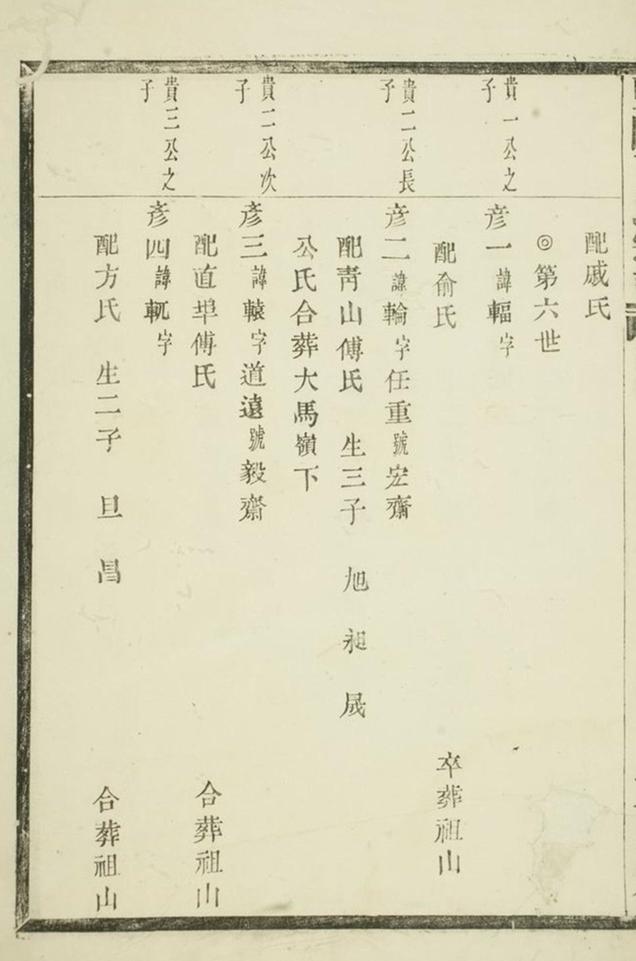 配戚氏
◎第六世
貴一公之
子
彦一諱輻字
配俞氏
卒葬祖山
貴二公長
子
彦二諱輪字任重號宏齋
配靑山傅氏 生三子 旭 昶 晟
公氏合葬大馬嶺下
貴二公次
子
彦三諱轅字道遠號毅齋
配直埠傅氏
合葬祖山
貴三公之
子
彦四諱軏字
配方氏 生二子 旦 昌
合葬祖山